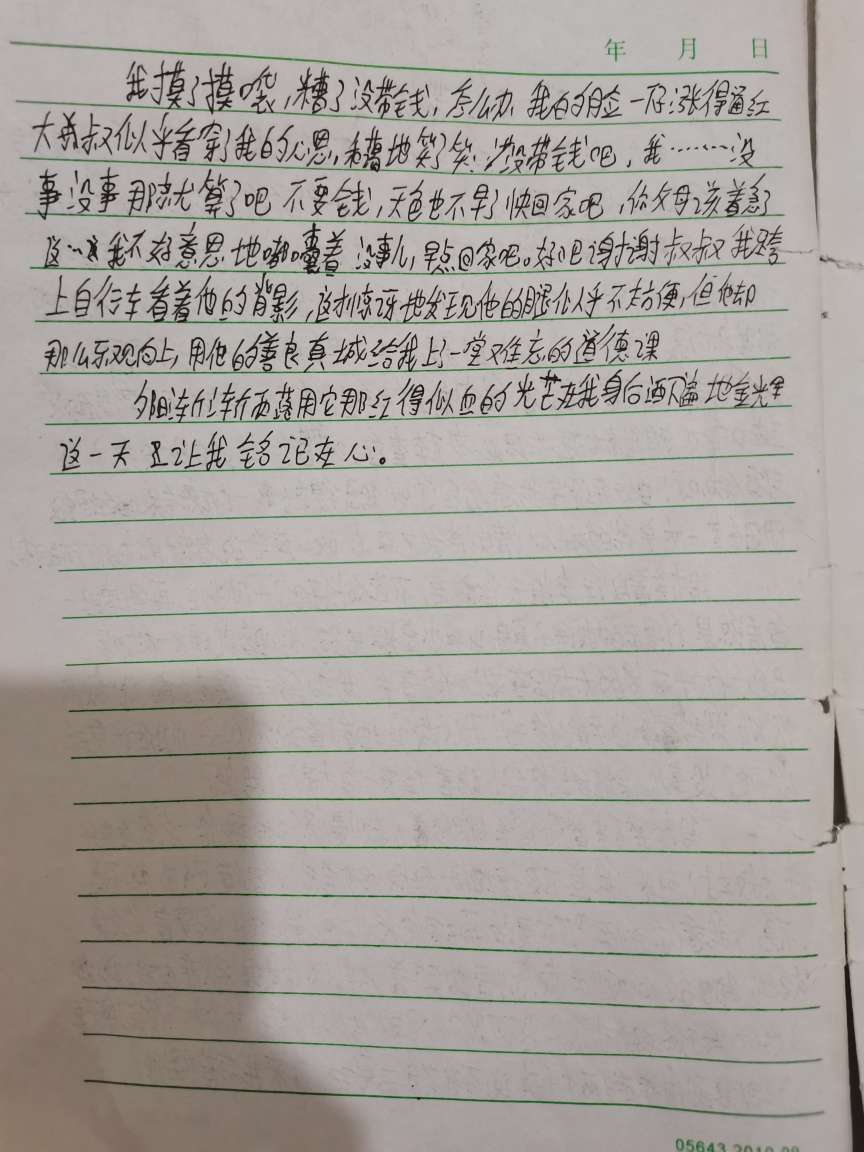 年 月 日
我摸了摸口袋,糟了没带钱,怎么办,我的脸一下涨得通红
大叔似乎看穿了我的心思,和蔼地笑了笑:没带钱吧,我………没
事没事那就算了吧 不要钱,天色也不早了快回家吧,你父母该着急了
这……我不好意思地嘟囔着 没事儿,早点回家吧。好吧谢谢叔叔 我跨
上自行车看着他的背影,这才惊讶地发现他的腿似乎不太方便,但他却
那么乐观向上,用他的善良真诚给我上了一堂难忘的道德课
夕阳渐渐西落用它那红得似血的光芒在我身后洒下满地金光
这一天 让我铭记在心。
05643 2019.09